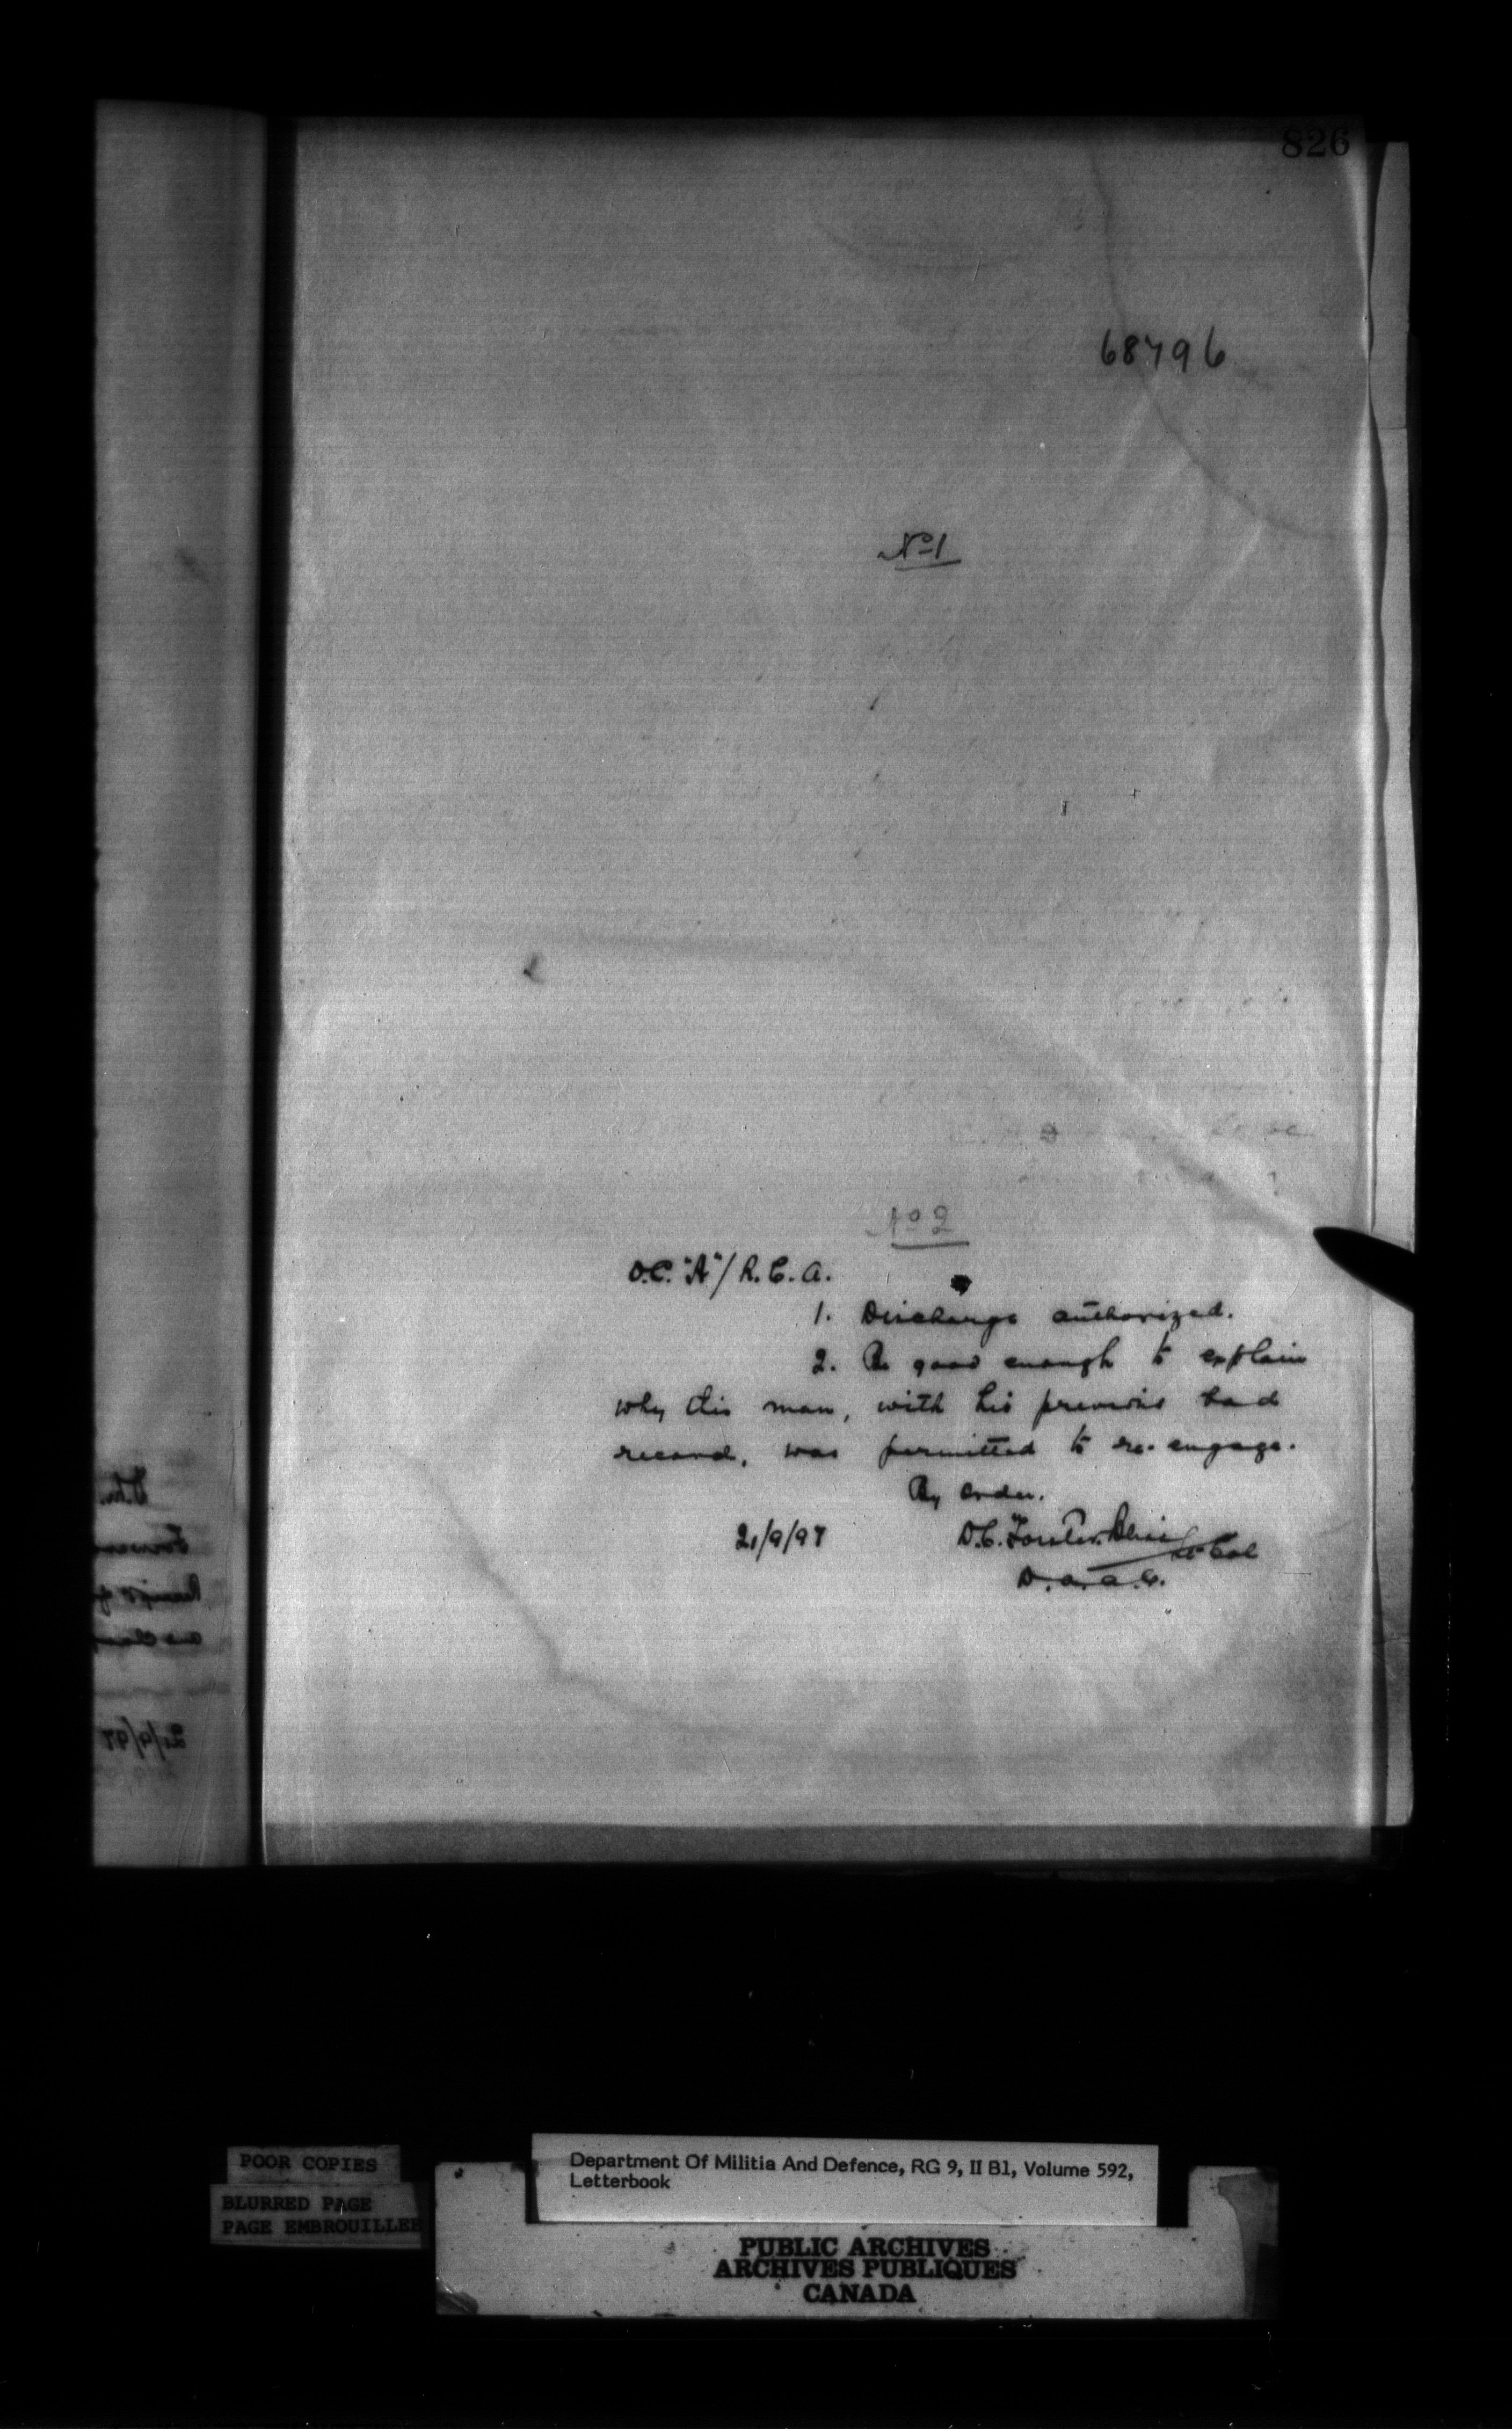 826
68796
No 1
No 2
O.C. "A"/R.C.A.
1. Discharge authorized.
2. Be good enough to explain
why this man, with his previous bad
record, was permitted to re-engage.
By order.
21/9/97
D.C. Forster Bliss Lt Col
D.A.A.G.
21/9/97
POOR COPIES
BLURRED PAGE
PAGE EMBROUILLEE
Department Of Militia And Defence, RG 9, II B1, Volume 592,
Letterbook
PUBLIC ARCHIVES
ARCHIVES PUBLIQUES
CANADA